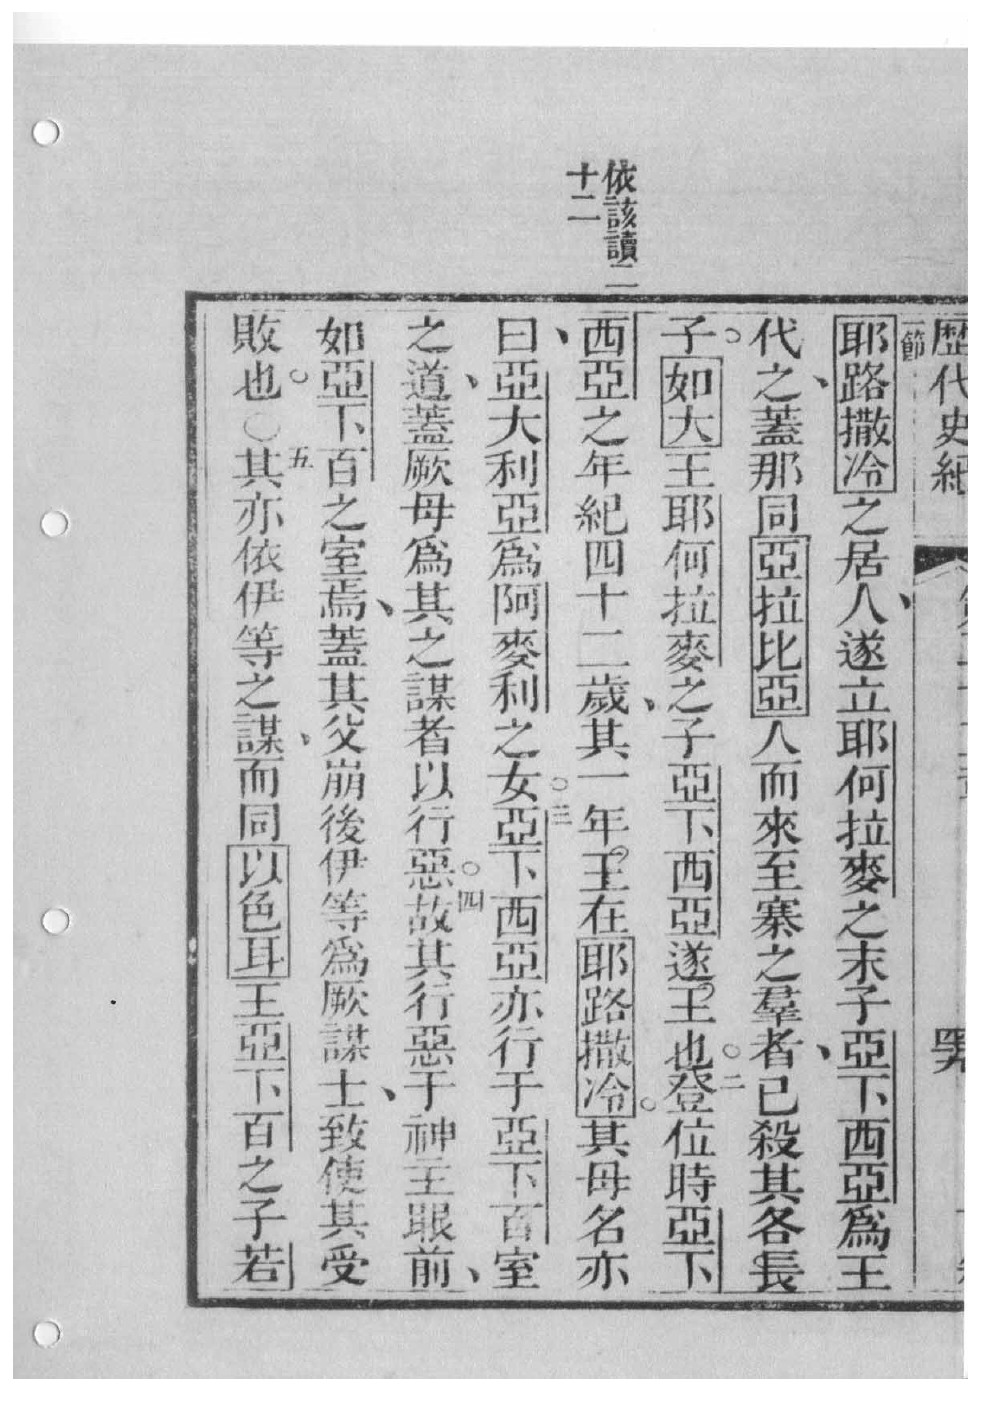 依該讀二
十二
歷代史紀
一節
耶路撒冷之居人、遂立耶何拉麥之末子亞下西亞爲王
代之、蓋那同亞拉比亞人而來至寨之羣者、已殺其各長
子。如大王耶何拉麥之子亞下西亞遂王也。二登位時亞下
西亞之年紀四十二歲、其一年王在耶路撒冷。其母名亦
曰、亞大利亞爲阿麥利之女。三亞下西亞亦行于亞下百室
之道、蓋厥母爲其之謀者以行惡。四故其行惡于神王眼前、
如亞下百之室焉、蓋其父崩後伊等爲厥謀士、致使其受
敗也。○五其亦依伊等之謀、而同以色耳王亞下百之子若